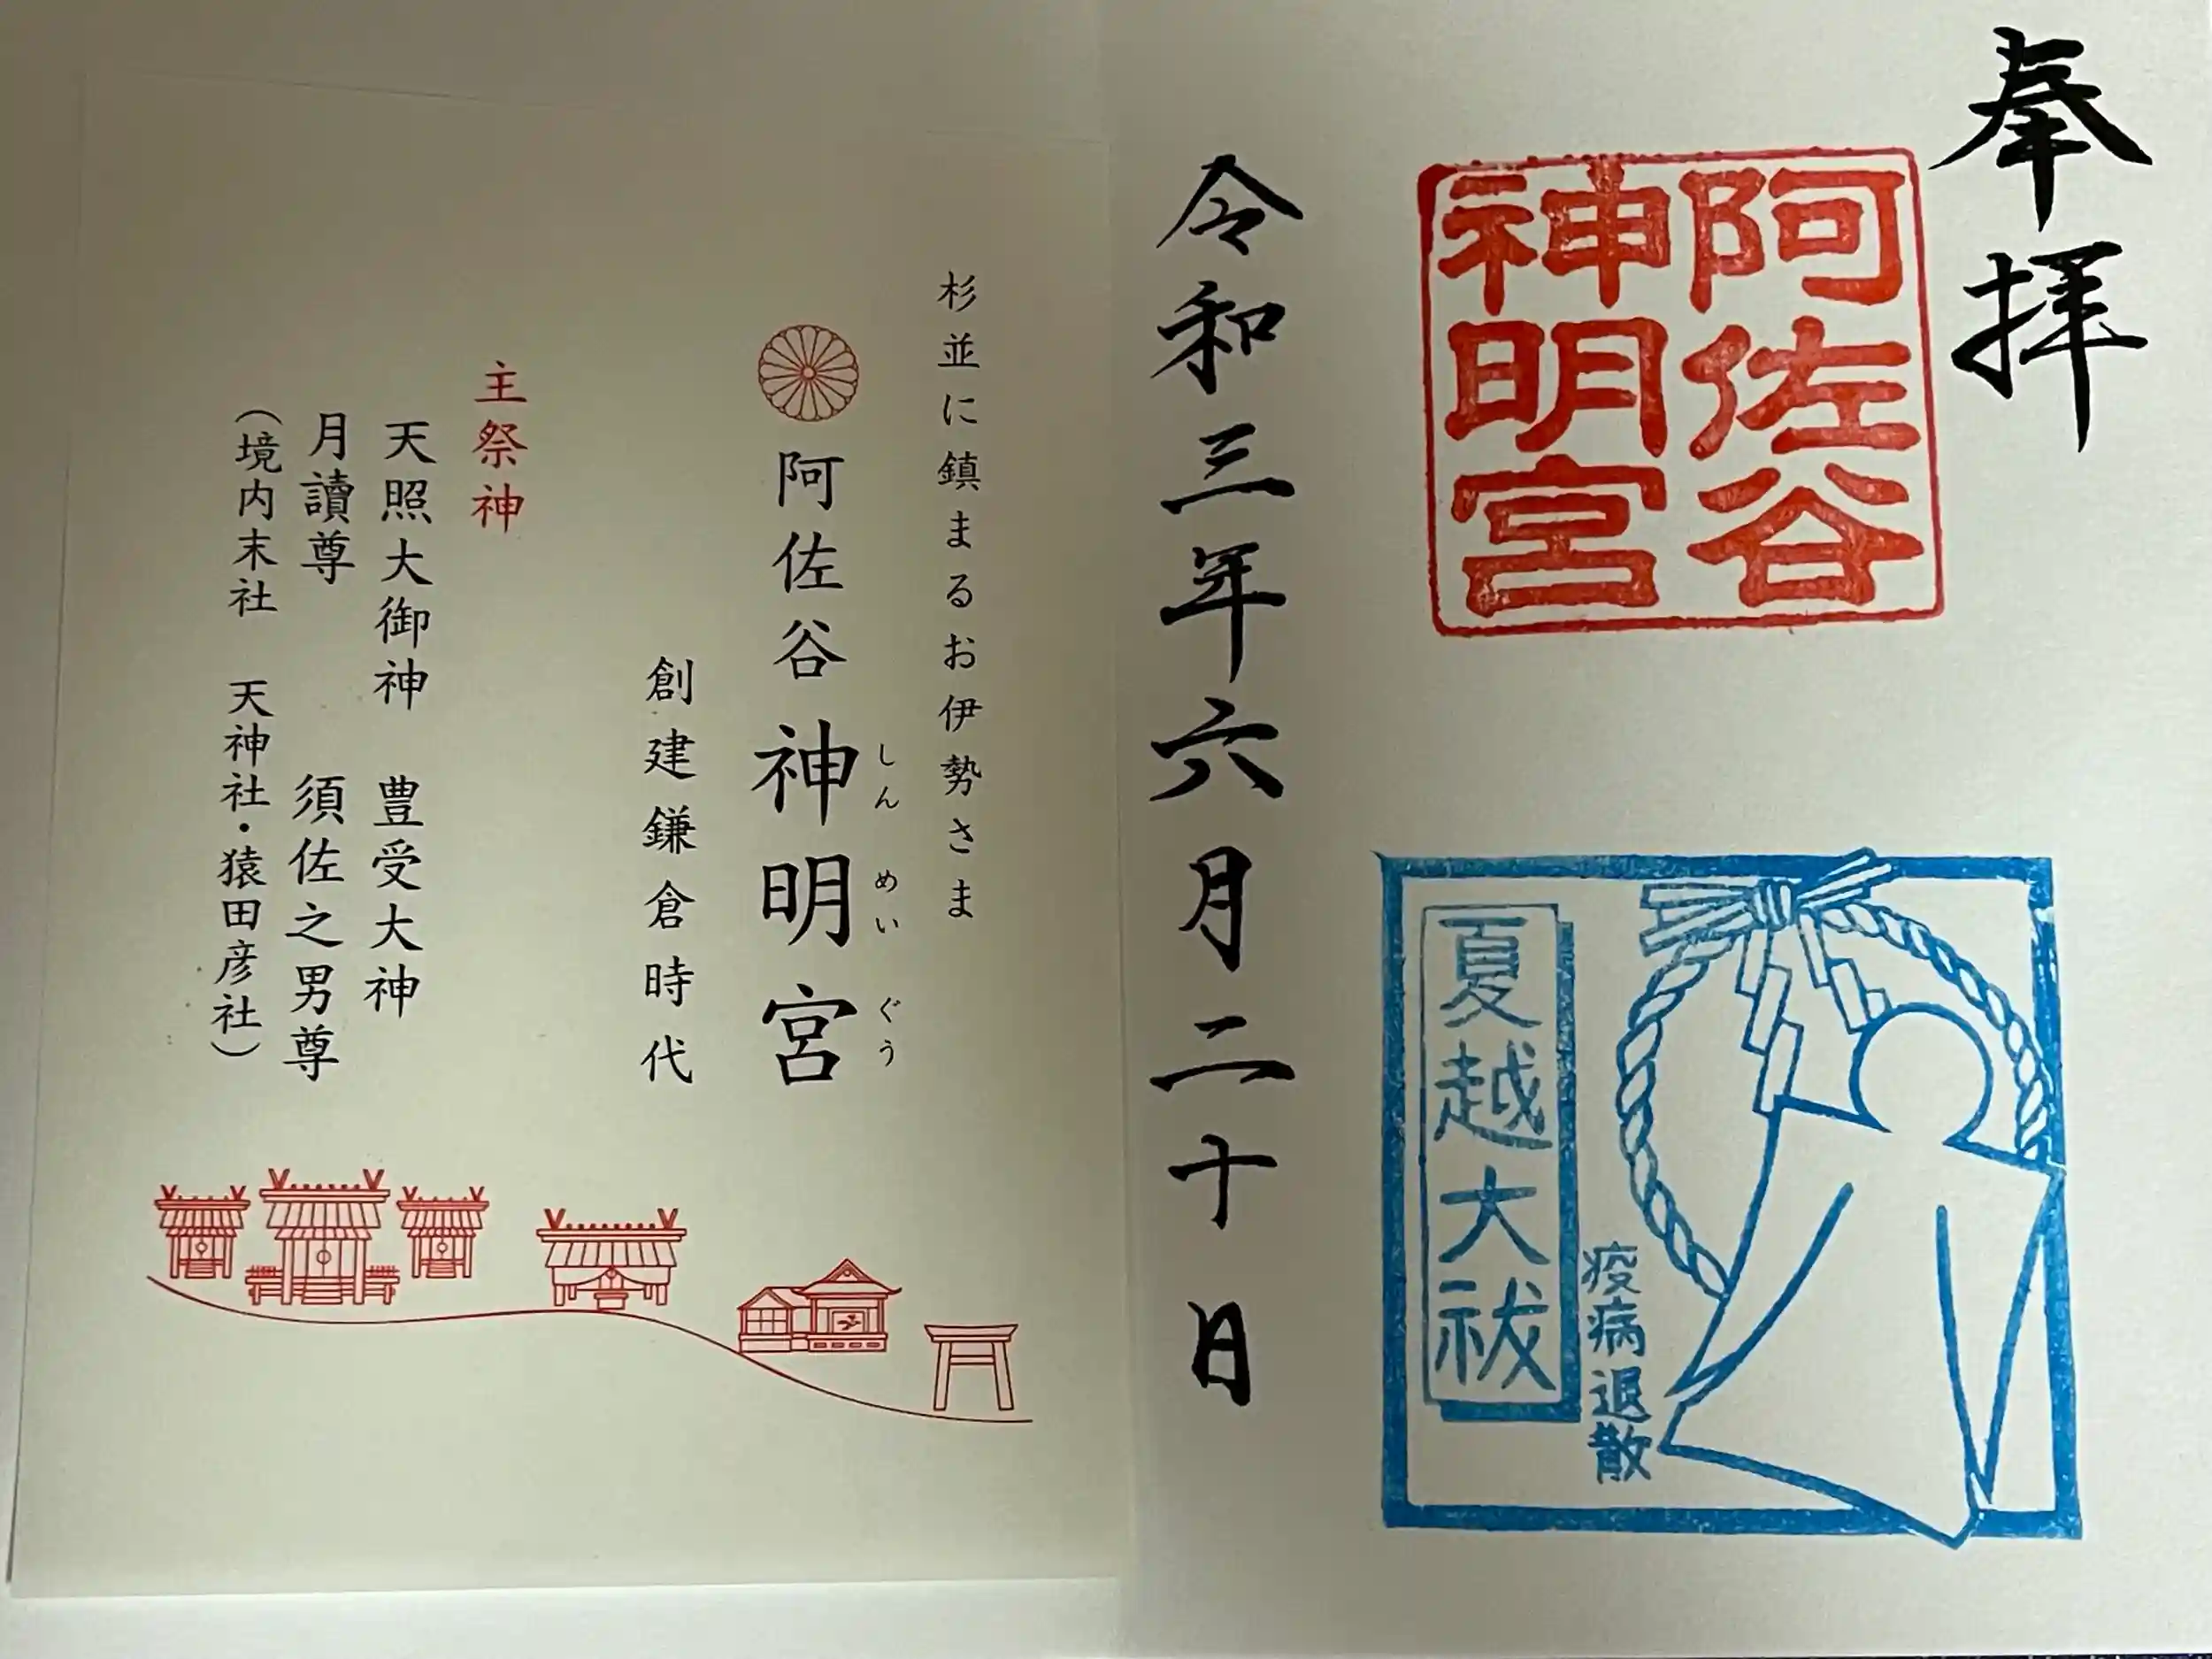 奉拝
阿佐谷
神明宮
夏越大祓
疫病退散
令和三年六月二十日
杉並に鎮まるお伊勢さま
阿佐谷神明宮
しんめいぐう
創建鎌倉時代
主祭神
天照大御神 豊受大神
月讀尊 須佐之男尊
(境内末社 天神社・猿田彦社)